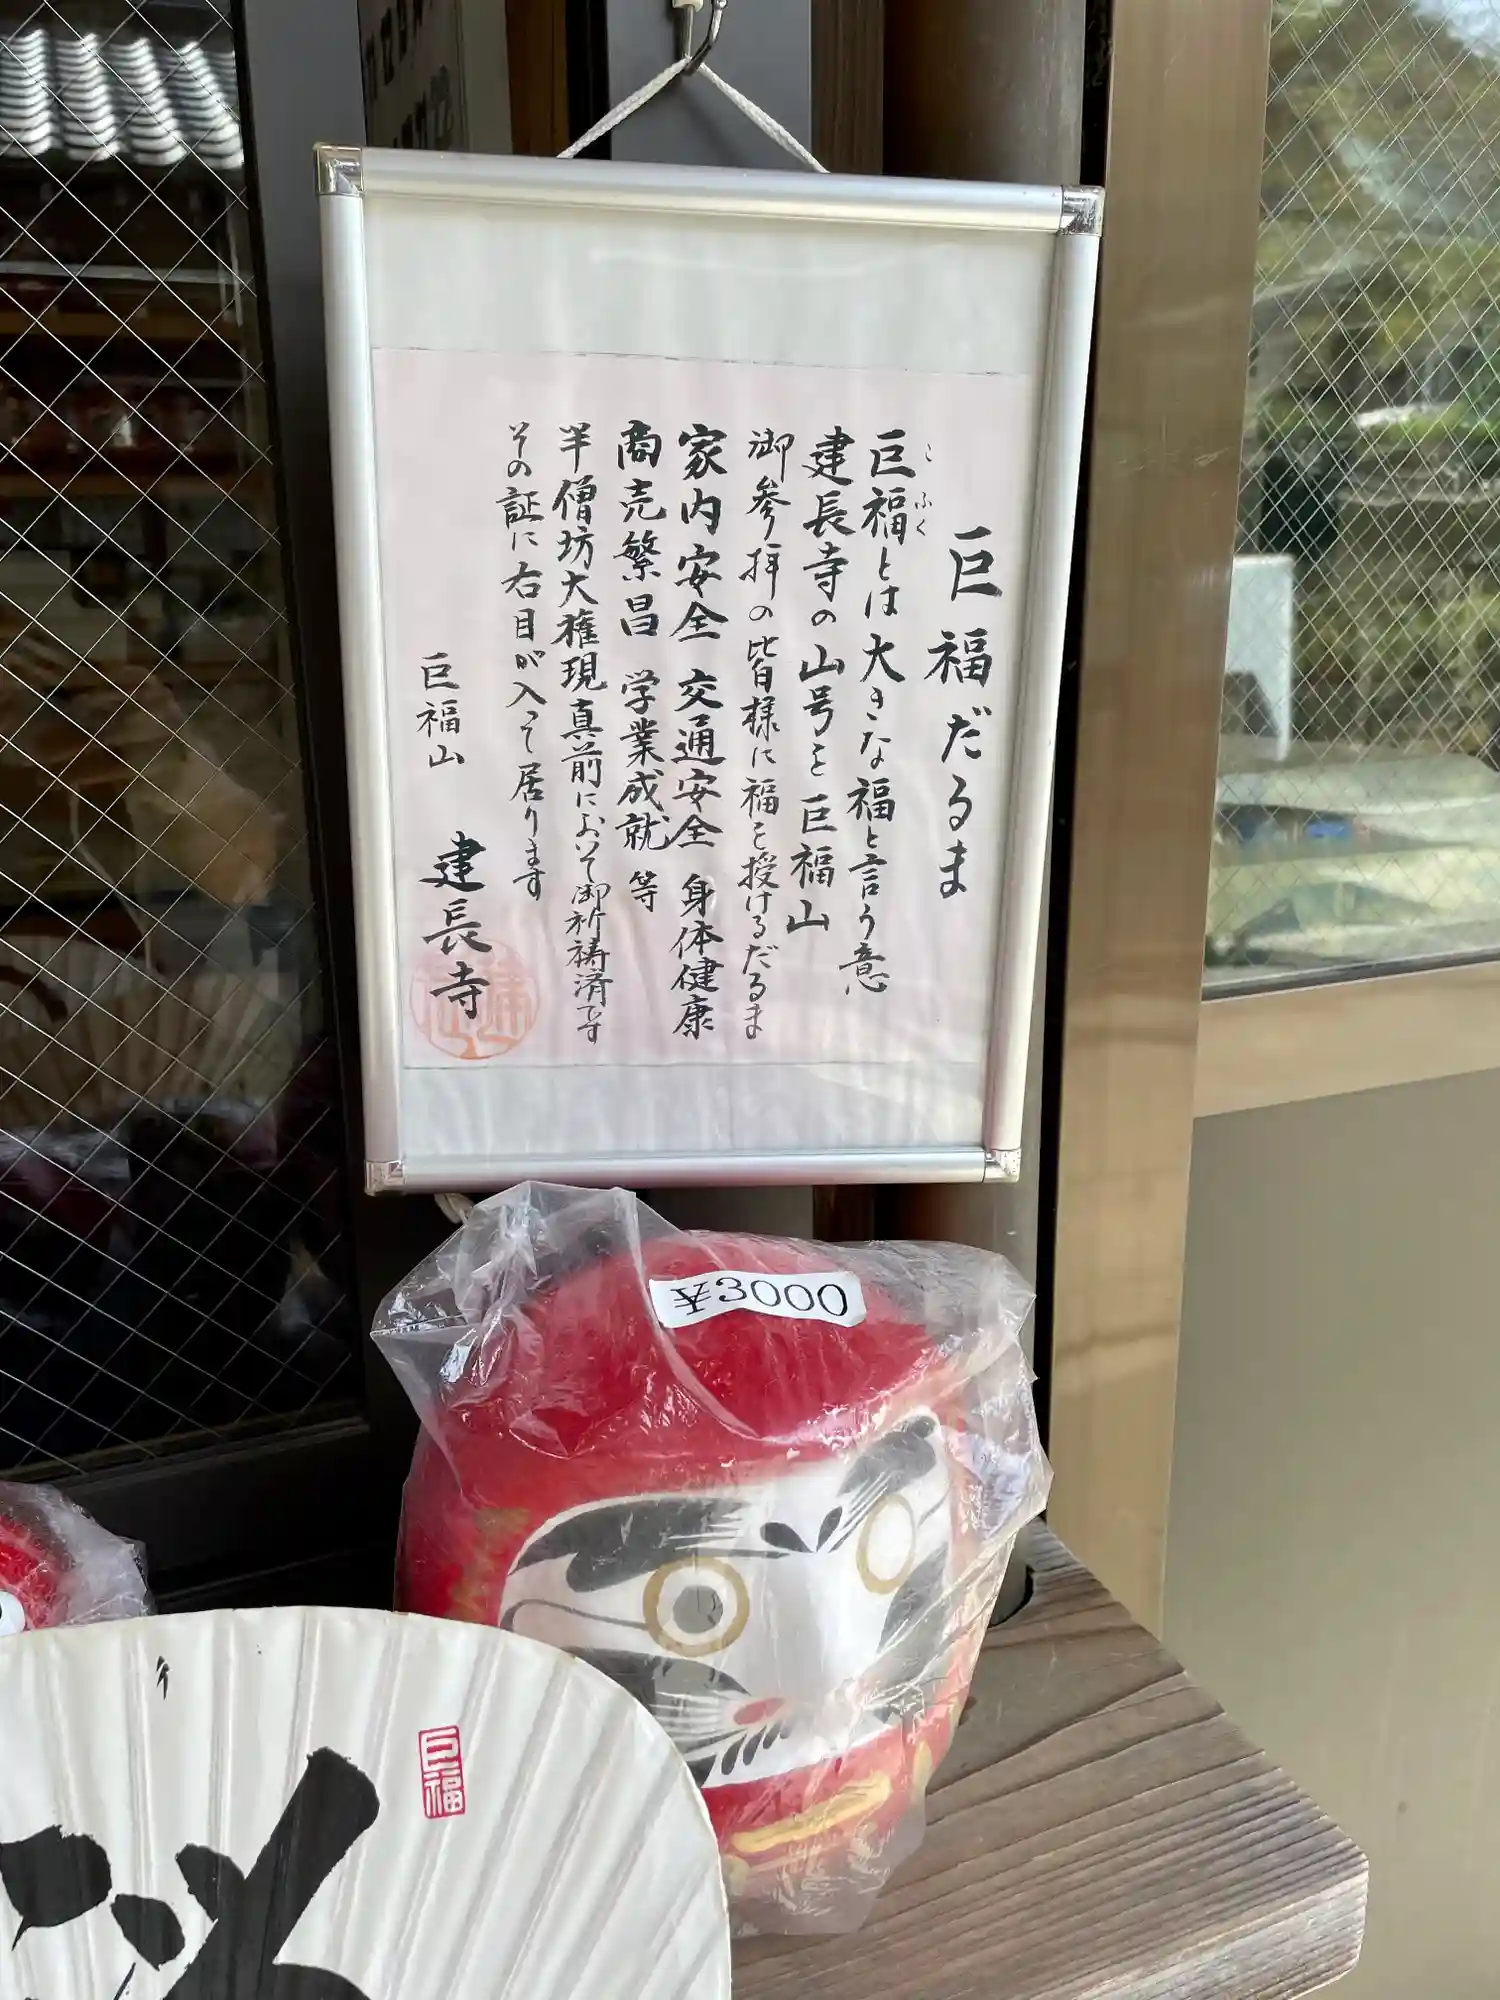 巨福だるま
こ ふく
巨福とは大きな福と言う意
建長寺の山号を巨福山
御参拝の皆様に福を授けるだるま
家内安全 交通安全 身体健康
商売繁昌 学業成就 等
半僧坊大権現真前において御祈祷済です
その証に右目が入って居ります
巨福山 建長寺
¥3000
巨福